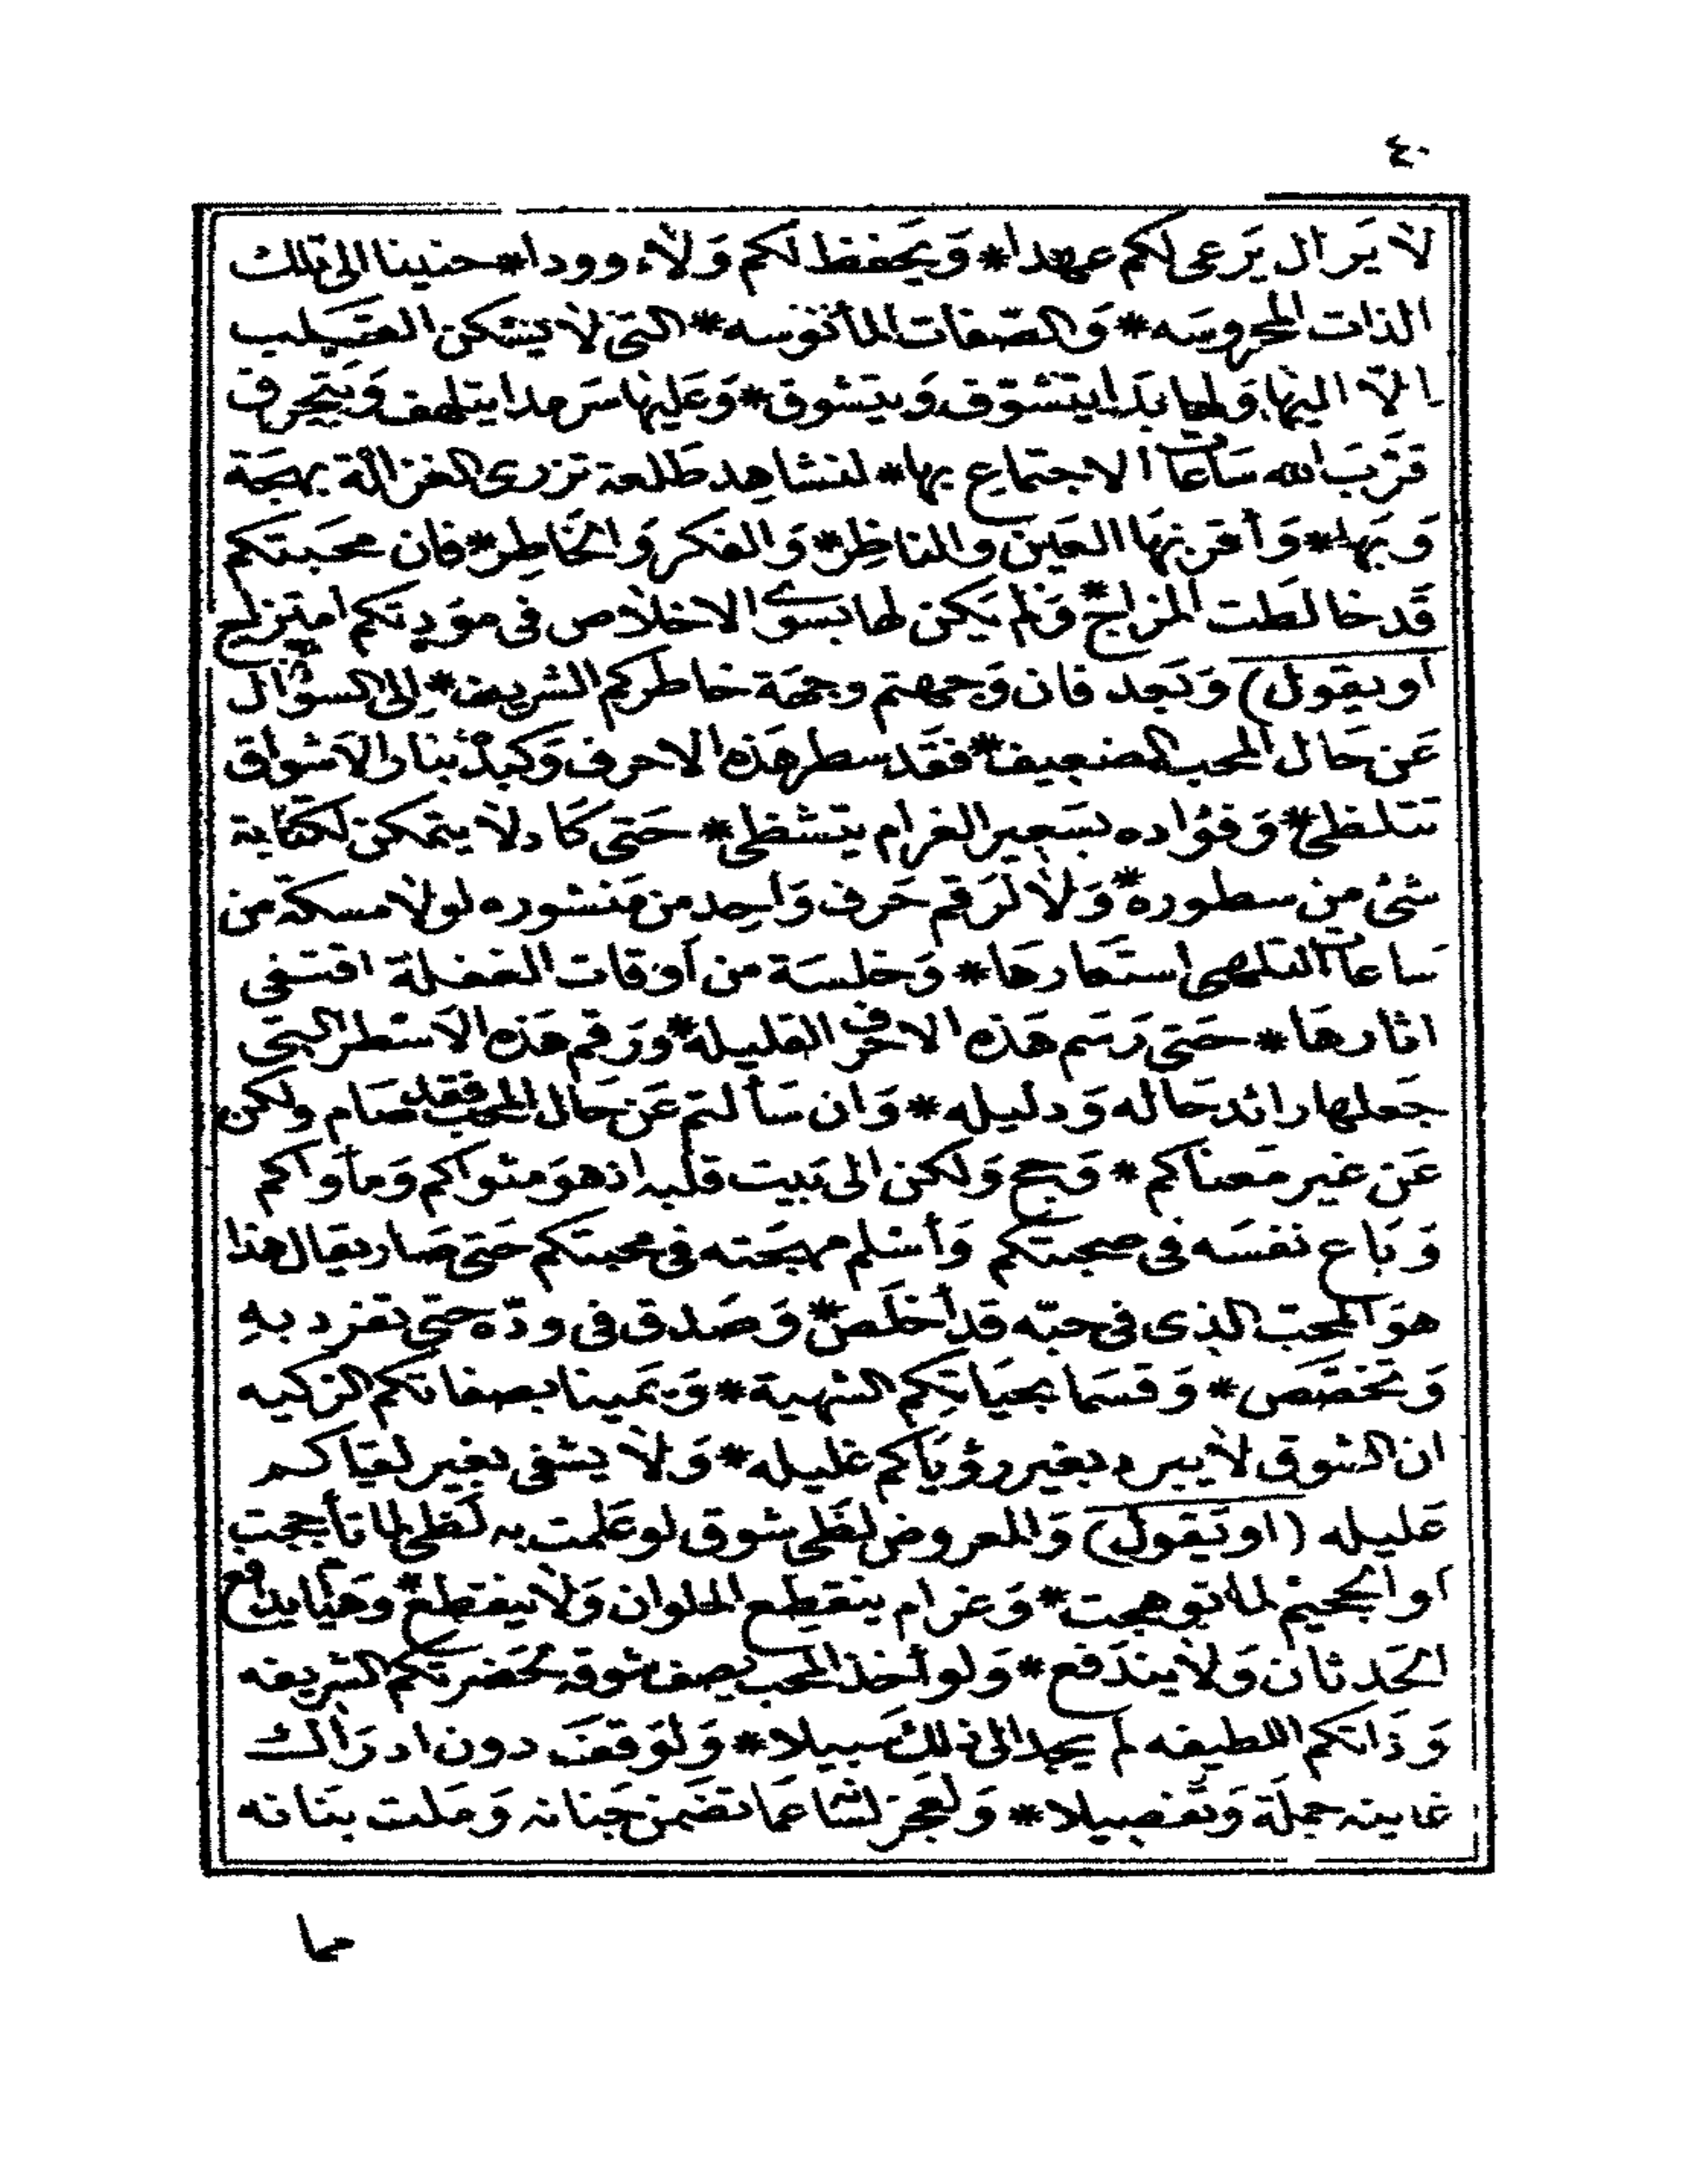 ٤٠
لا يزال يرعى لكم عهدا * ويحفظ لكم ولاء وودا * حنينا الى تلك
الذات المحروسه * والصفات المأنوسه * التى لا يسكن القلب
الا اليها ولها بدا يتشوق ويتشوق * وعليها سرمدا يتلهف ويتحرق
قرّب الله ساعات الاجتماع بها * لنشاهد طلعة تزرى الغزالة بهجة
وبها * وأقر بها العين والناظر * والفكر والخاطر * فان محبتكم
قد خالطت المزاج * ولم يكن لها بسوى الاخلاص فى مودتكم امتزاج
(او يقول) وبعد فان وجهتم وجهة خاطركم الشريف * الى السؤال
عن حال المحب الضعيف * فقد سطر هذه الاحرف وكبده بنار الاشواق
تتلظى * وفؤاده بسعير الغرام يتشظى * حتى كاد لا يتمكن لكتابة
شئ من سطوره * ولا لرقم حرف واحد من منشوره لولا مسكة من
ساعات التلهى استعارها * وخلسة من اوقات الغفلة اقتفى
اثارها * حتى رسم هذه الاحرف القليلة * ورقم هذه الاسطر التى
جعلها رائد حاله ودليله * وان سألتم عن حال المحب فقد صام ولكن
عن غير معناكم * وحج ولكن الى بيت قلبه اذ هو مثواكم ومأواكم
وباع نفسه فى صحبتكم وأسلم مهجته فى محبتكم حتى صار يقال هذا
هو المحب الذى فى حبّه قد أخلص * وصدق فى ودّه حتى تفرد به
وتخصّص * وقسما بحياتكم الشهية * ويمينا بصفاتكم الزكيه
ان الشوق لا يبرد بغير رؤياكم غليله * ولا يشفى بغير لقياكم
عليله (او يقول) والمعروض لظى شوق لو علمت به لظى لما تأججت
او الجحيم لما توهجت * وغرام ينقطع الملوان ولا ينقطع * وهيام يدافع
الحدثان ولا يندفع * ولو أخذ المحب يصف شوقه لحضرتكم الشريفه
وذاتكم اللطيفه لم يجد الى ذلك سبيلا * ولوقف دون ادراك
غايته جملة وتفصيلا * ولعجز لسانه عما تضمن جنانه وملت بنانه
مما